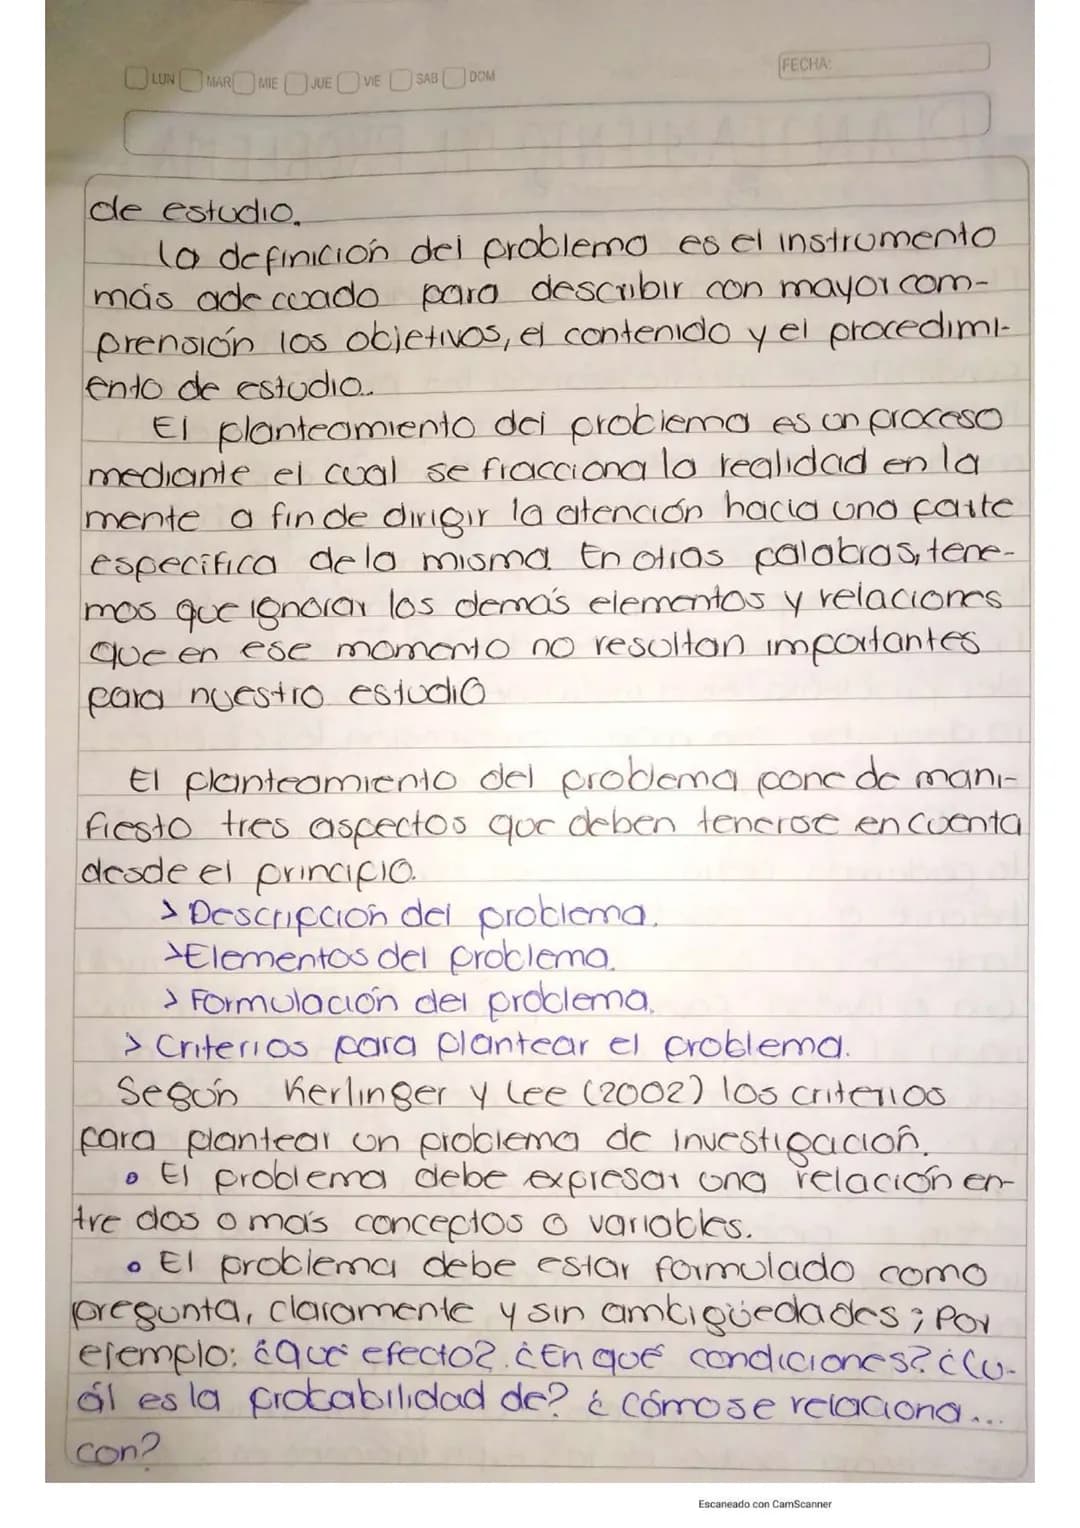 LUN MAR MIE JUE VIE SAB DOM
FECHA:
de estudio.
La definición del problema es el instrumento
más adecuado para describir con mayor com-
prensión los objetivos, el contenido y el procedimi-
ento de estudio..
El planteamiento del problema es un proceso
mediante el cual se fracciona la realidad en la
mente a fin de dirigir la atención hacia una parte
específica de la misma. En otras palabras, tene-
mos que ignorar los demás elementos y relaciones
que en ese momento no resultan importantes
para nuestro estudio
El planteamiento del problema pone de mani-
fiesto tres aspectos que deben tenerse en cuenta
desde el principio.
> Descripción del problema.
> Elementos del problema.
> Formulación del problema.
> Criterios para plantear el problema.
Según Kerlinger y Lee (2002) los criterios
para plantear un problema de investigación.
• El problema debe expresar una relación en-
tre dos o más conceptos o variables.
• El problema debe estar formulado como
pregunta, claramente y sin ambigüedades; Por
ejemplo: ¿Qué efecto?. ¿En qué condiciones? ¿Cu-
ál es la probabilidad de? ¿Cómo se relaciona...
con?
Escaneado con CamScanner